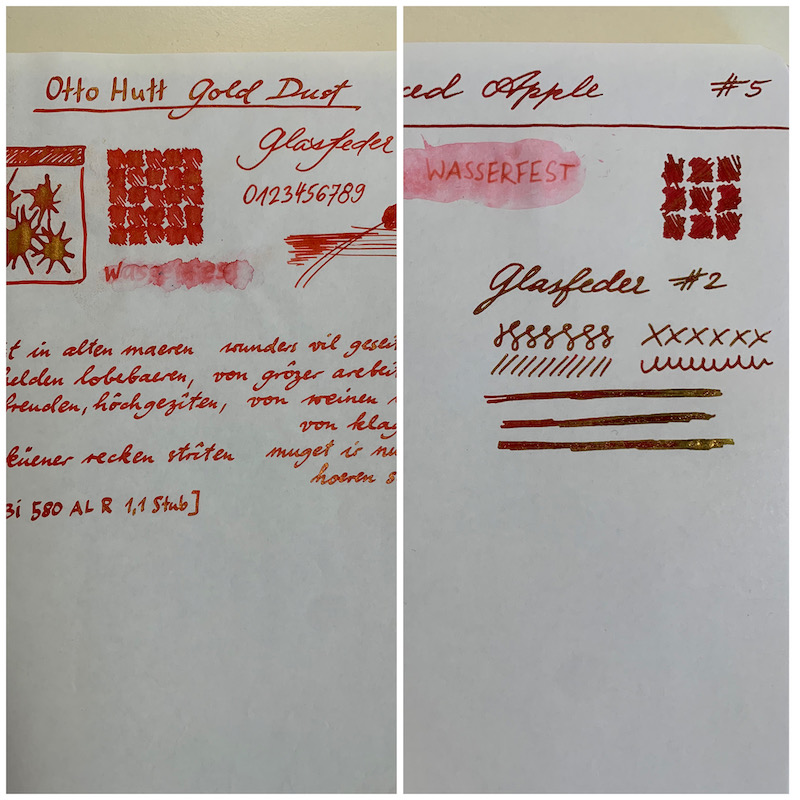 Otto Hutt Gold Dust
Glasfeder
0123456789
Wasserfest
st in alten maeren wunders vil geseit
helden lobebaeren, von grôzer arebeit
freuden, hôchgezîten, von weinen
von klag
küener recken strîten muget ir nu
hoeren s
3i 580 AL R 1,1 Stub]
ced Apple #5
WASSERFEST
Glasfeder #2
xxxxxx